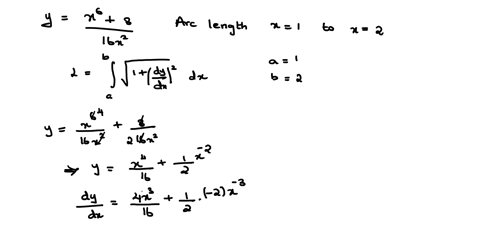 y = (x^6 + 8) / 16x^2   Arc length   x = 1   to   x = 2
L = ∫_a^b √(1 + (dy/dx)^2) dx   a = 1
b = 2
y = x^6 4 / 16x^2 + 8 / 2 16x^2
⇒ y = x^4 / 16 + 1/2 x^-2
dy/dx = 4x^3 / 16 + 1/2 · (-2) x^-3